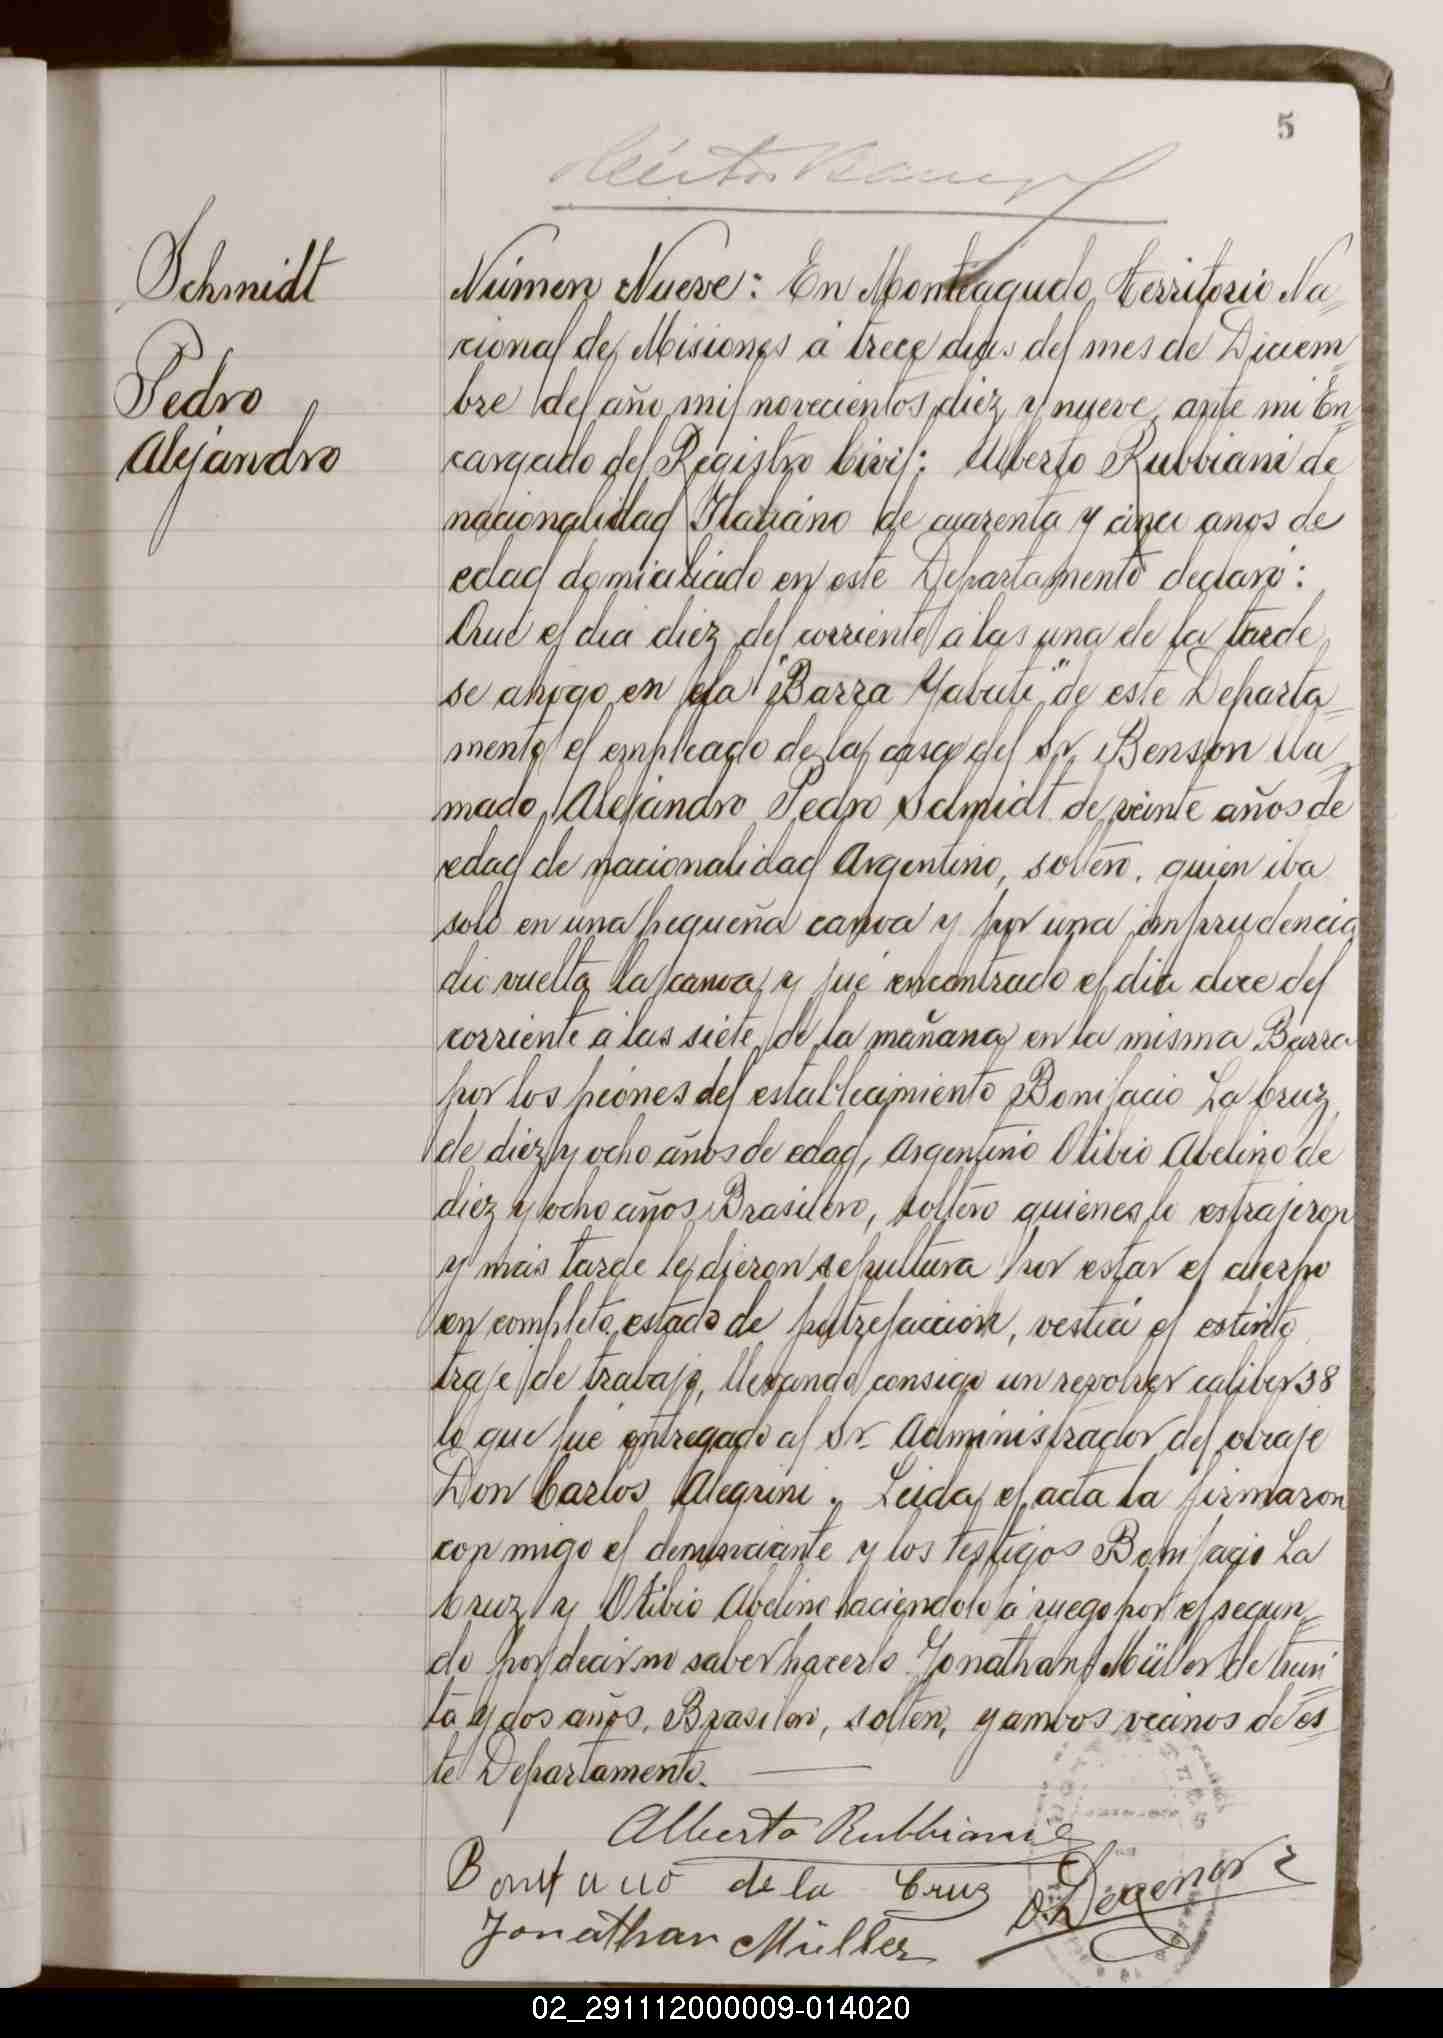 5
Schmidt
Pedro
Alejandro
Númen Nueve: En Monteagudo, territorio Na=
cional de Misiones á trece dias del mes de Diciem
bre del año mil novecientos diez y nueve, ante mi En=
cargado del Registro Civil: Alberto Rubbiani de
nacionalidad Italiano de cuarenta y cinco anos de
edad domiciliado en este Departamento declaró:
Que el dia diez del corriente a las una de la tarde
se ahogo en la "Barra Yabuti" de este Departa=
mento el empleado de la casa del Sr. Benson lla=
mado, Alejandro Pedro Schmidt de veinte años de
edad de nacionalidad Argentino, soltero, quien iva
solo en una pequeña canoa y por una imprudencia
dio vuelta la canoa y fué encontrado el dia doce del
corriente a las siete de la mañana en la misma Barra
por los peónes del establecimiento Bonifacio La Cruz,
de diez y ocho años de edad, Argentino Otibio Abelino de
diez y ocho años Brasilero, soltero quienes lo estrajeron
y más tarde le dieron sepultura por estar el cuerpo
en completo estado de putrefacción, vestia el estinto
traje de trabajo, llevando consigo un revolver caliber 38
lo que fué entregado al Sr. Administrador del obraje
Don Carlos Alegrini. Leida el acta la firmaron
con migo el denunciante y los testigos Bonifacio La
Cruz y Otibio Abelino haciendolo á ruego por el segun=
do por decir no saber hacerlo Jonathan Müller de trein
ta y dos años, Brasilero, soltero, y ambos vecinos de es=
te Departamento.
Alberto Rubbiani
Bonifacio de la Cruz
Jonathan Müller
02_291112000009-014020